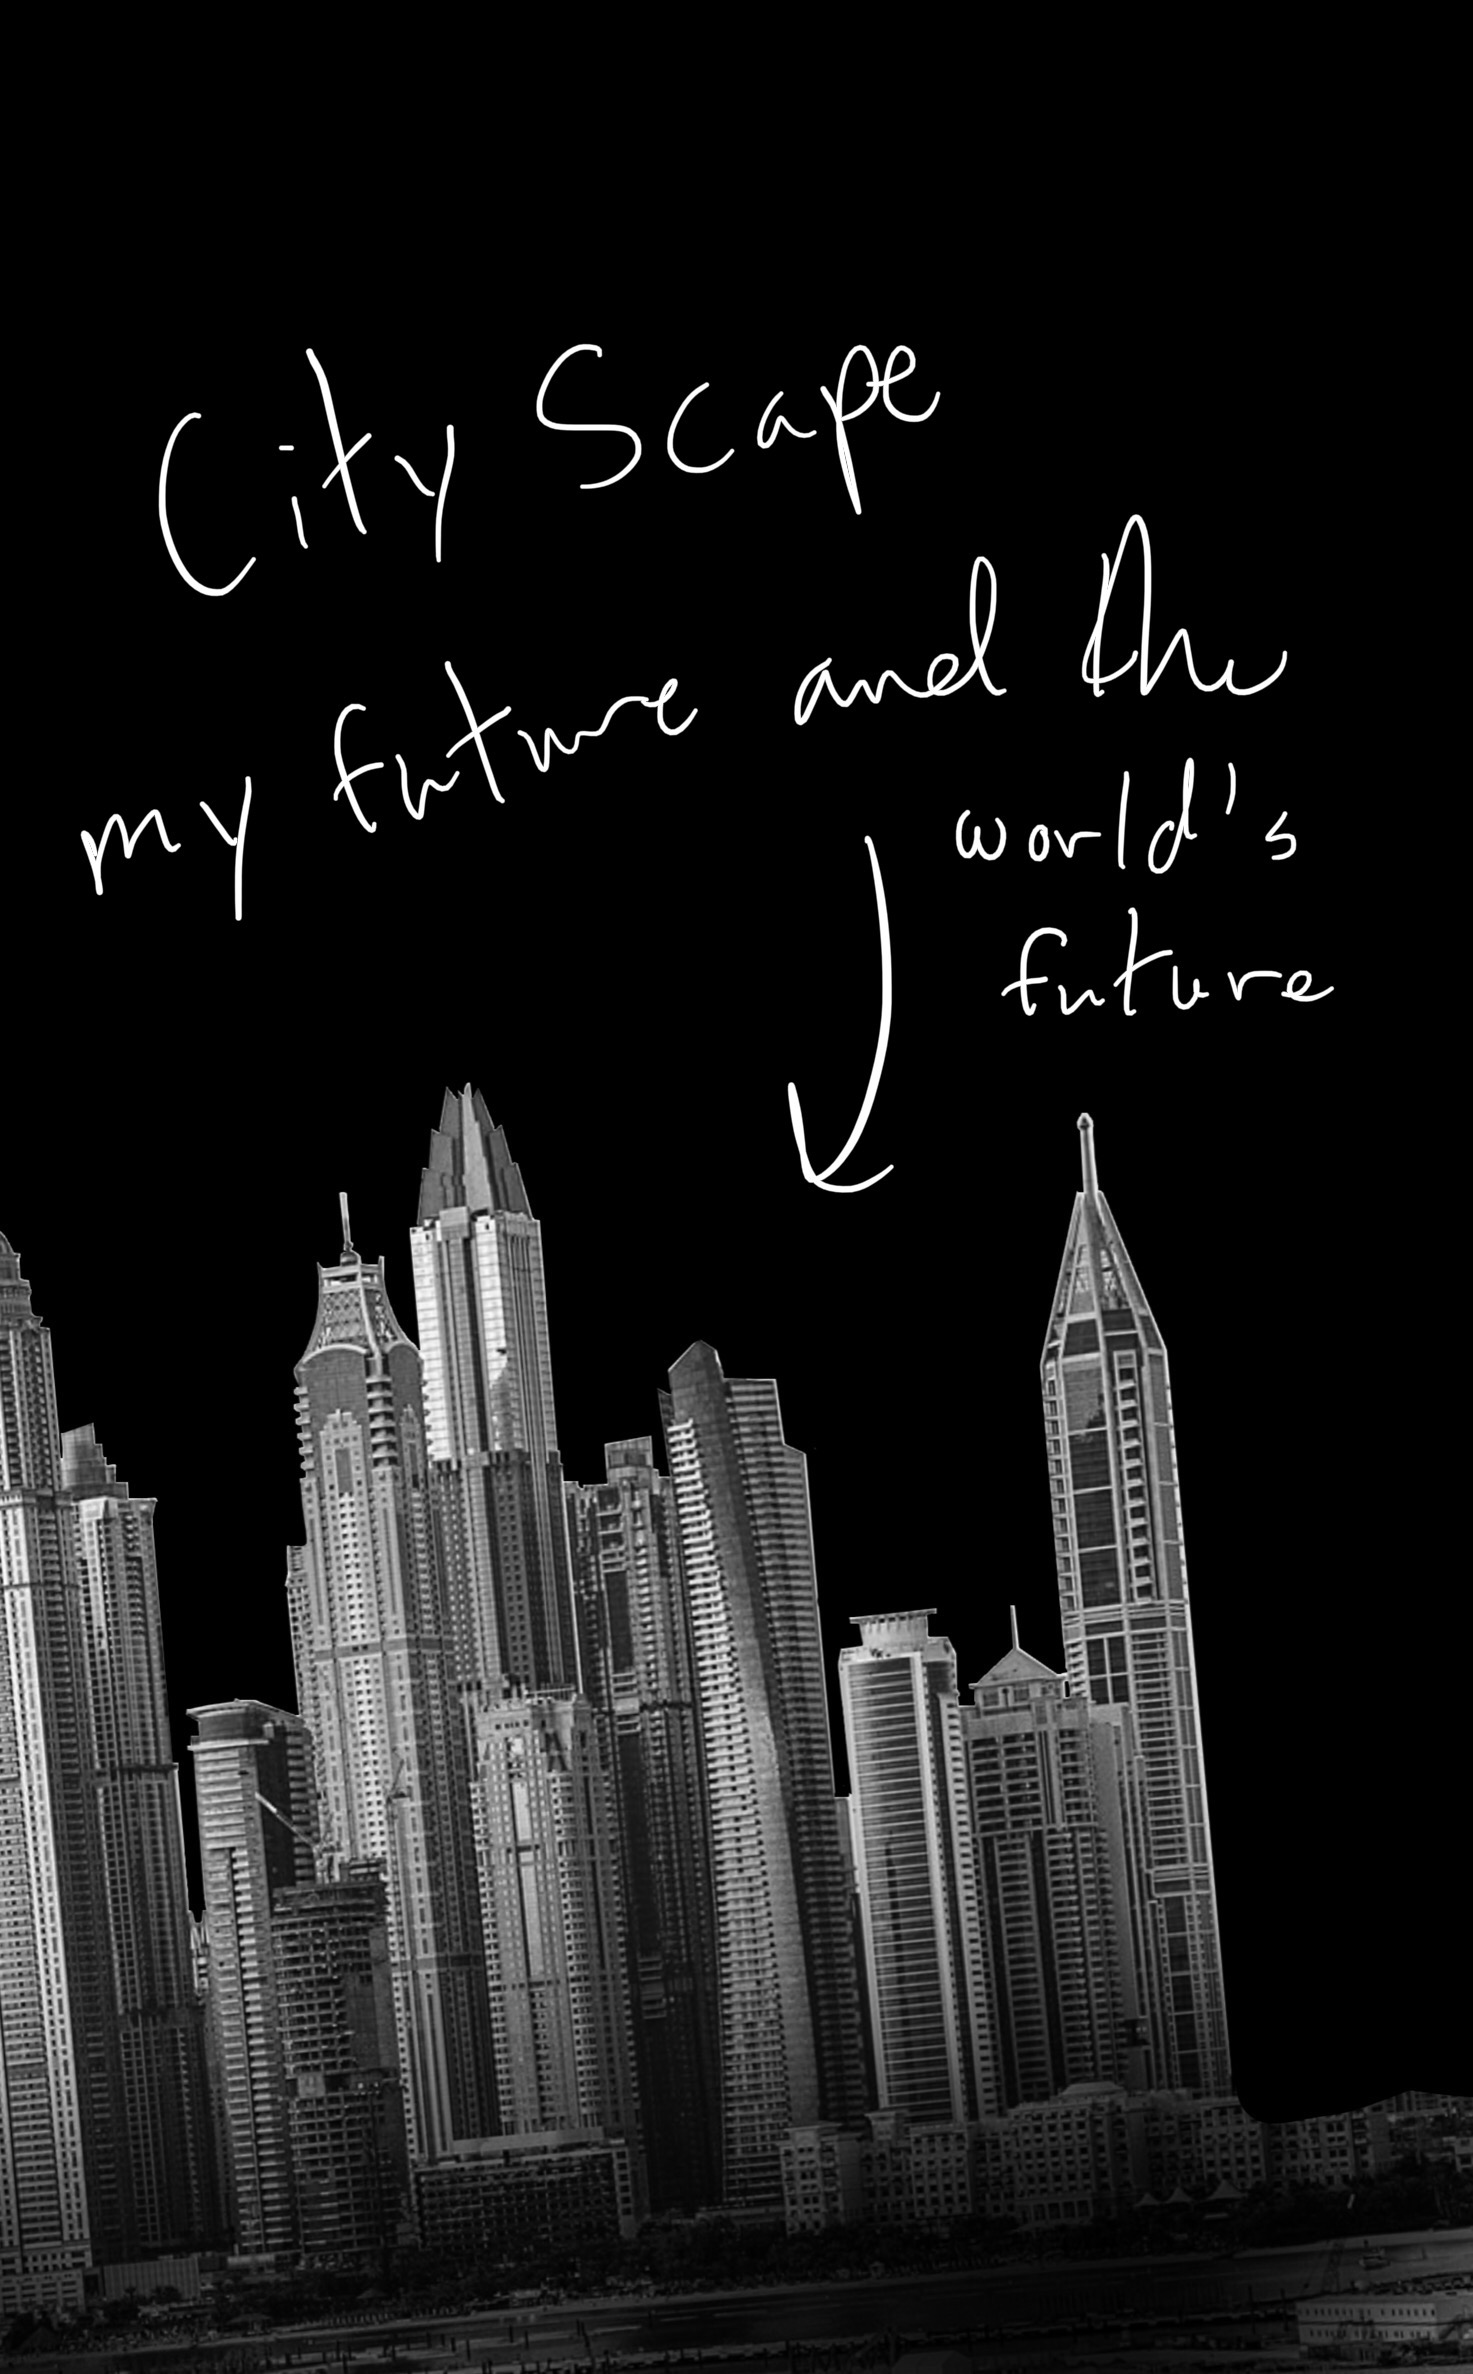 City Scape
my future and the
world's
future